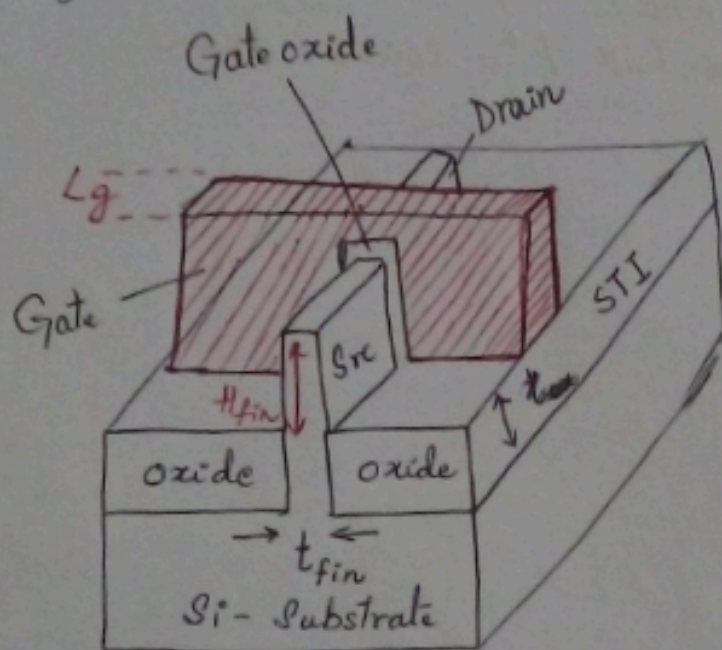 Gate oxide
Drain
Lg
Gate
Src
STI
Hfin
oxide
oxide
tfin
Si- Substrate